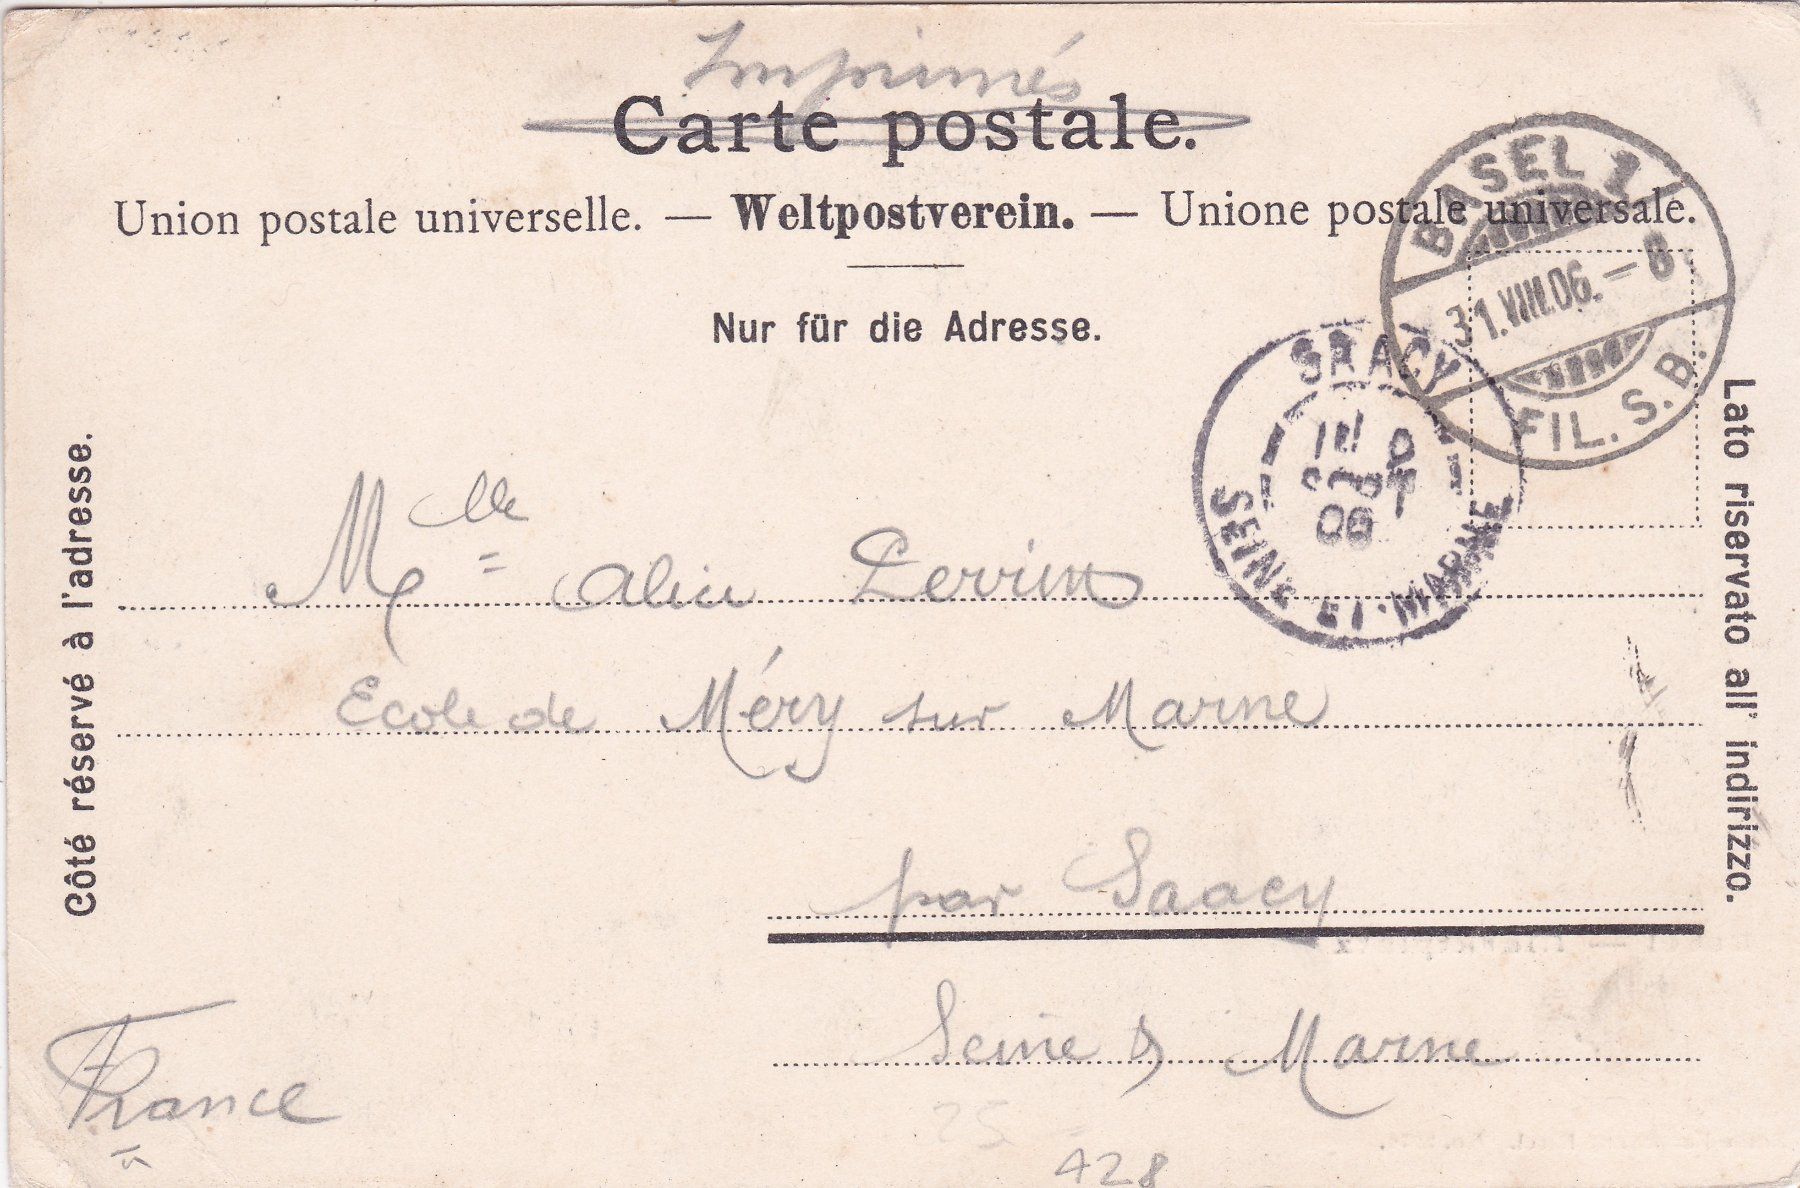 Imprimés
Carte postale.
Union postale universelle. — Weltpostverein. — Unione postale universale.
Nur für die Adresse.
BASEL 1
31.VIII.06. – 8
FIL. S. B.
SAACY
SEPT
06
SEINE-ET-MARNE
Côté réservé à l'adresse.
Lato riservato all' indirizzo.
Mlle Alice Perrin
Ecole de Méry sur Marne
par Saacy
Seine & Marne
France
25
428